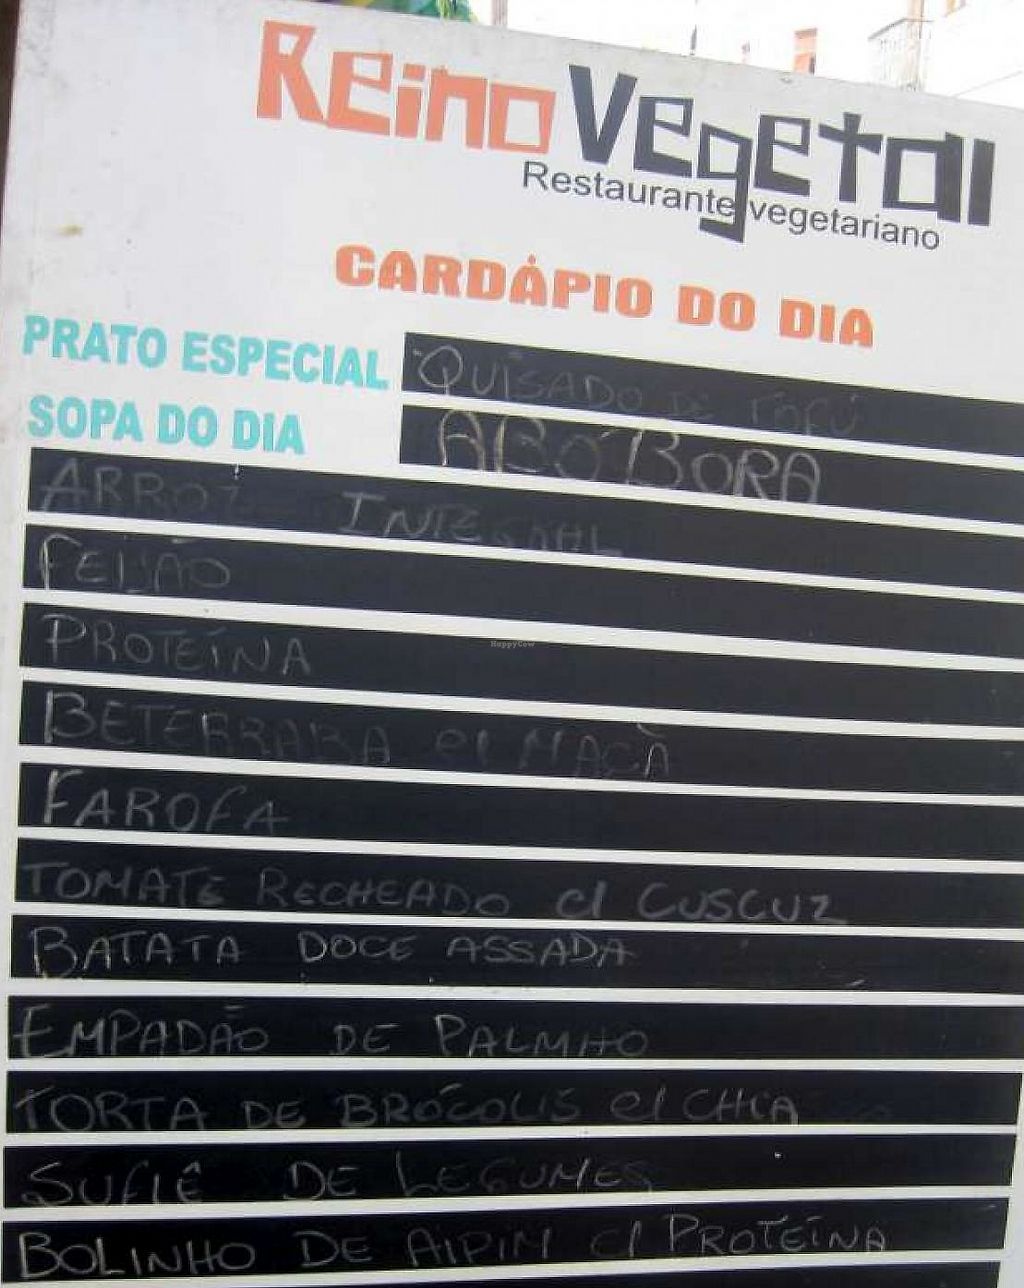 Reino Vegetal
Restaurante vegetariano
CARDÁPIO DO DIA
PRATO ESPECIAL QUISADO DE TOFU
SOPA DO DIA ABÓBORA
ARROZ INTEGRAL
FEIJÃO
PROTEÍNA
BETERRABA c/ MAÇÃ
FAROFA
TOMATE RECHEADO c/ CUSCUZ
BATATA DOCE ASSADA
EMPADÃO DE PALMITO
TORTA DE BRÓCOLIS c/ CHIA
SUFLÊ DE LEGUMES
BOLINHO DE AIPIM c/ PROTEÍNA
HappyCow